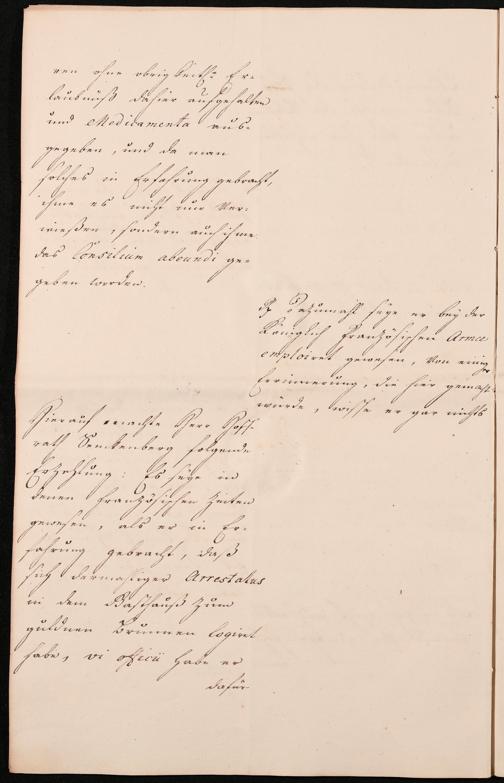 ren ohne obrigkeitl. Er-
laubnüß dahier aufgehalten
und Medicamenta aus-
gegeben, und da man
solches in Erfahrung gebracht,
ihme es nicht nur ver-
wießen, sondern auch ihme
das Consilium abeundi ge-
geben worden.
Dazumahl seye er bey der
Königlich Französischen Armee
emploiret gewesen, von einiger
Erinnerung, die hier gemacht
wurde, wisse er gar nichts
Hierauf machte Herr Hoff-
rath Senckenberg folgende
Erzehlung: Es seye in
denen Französischen Zeiten
gewesen, als er in Er-
fahrung gebracht, daß
sich dermahliger Arrestatus
in dem Gasthauß zum
güldnen Brunnen logiret
habe, vi officii habe er
dafür